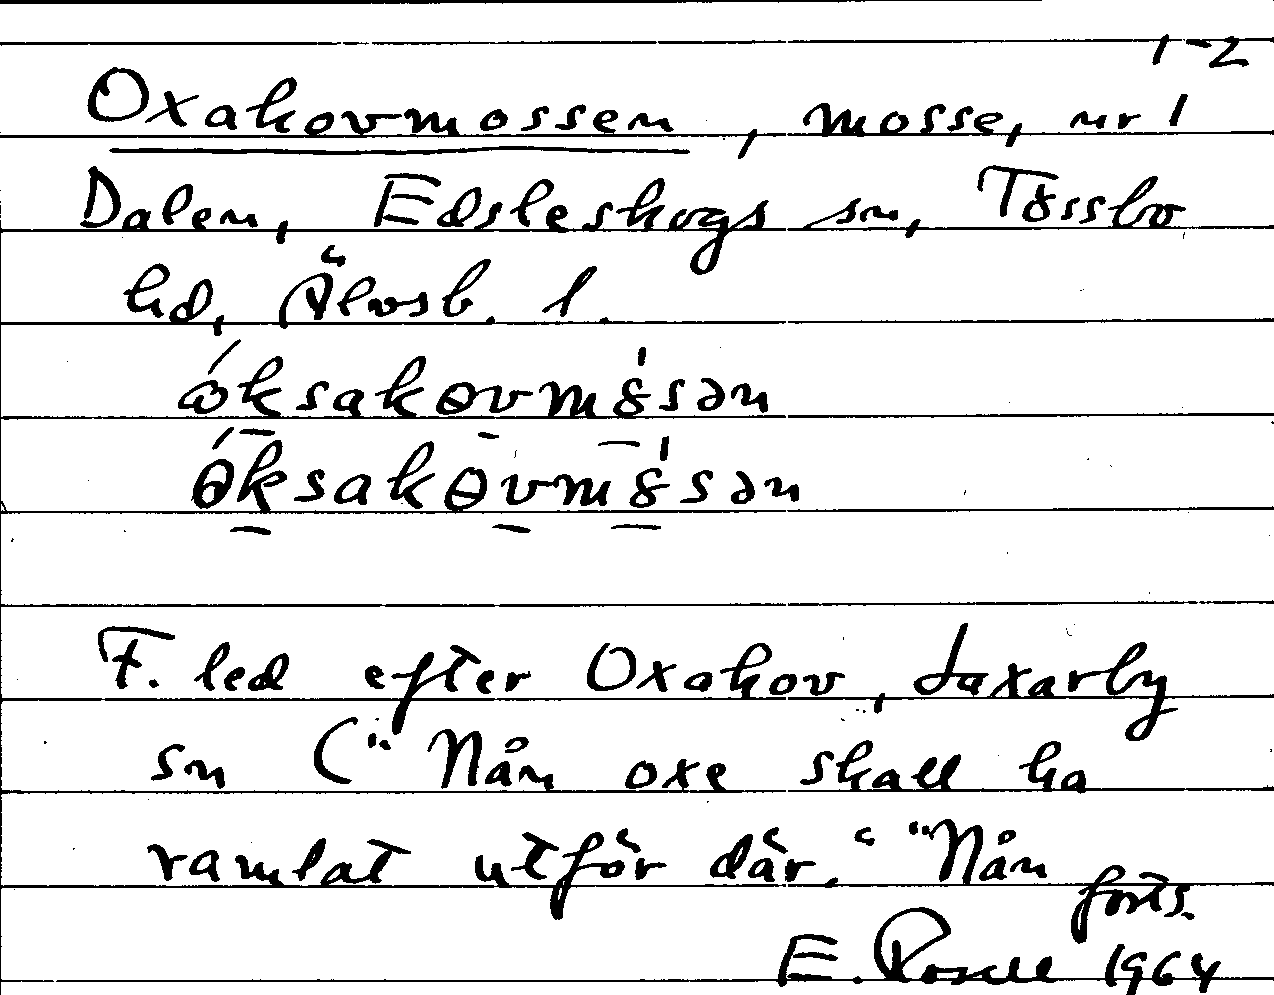 1-2
Oxakovmossen, mosse, nr 1
Dalen, Edsleskogs sn, Tössbo
hd, Älvsb. l.
ὼksakɵvmȣ̍sən
ɵ́ksakɵvmȣ̍sən
F. led efter Oxakov, Laxarby
sn ("Nån oxe skall ha
ramlat utför där." "Nån
forts.
E. Rosell 1964